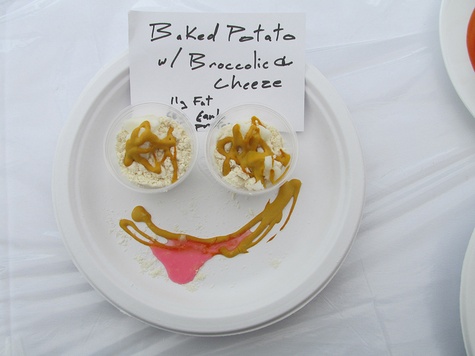 Baked Potato
w/ Broccolic &
Cheeze
11g Fat